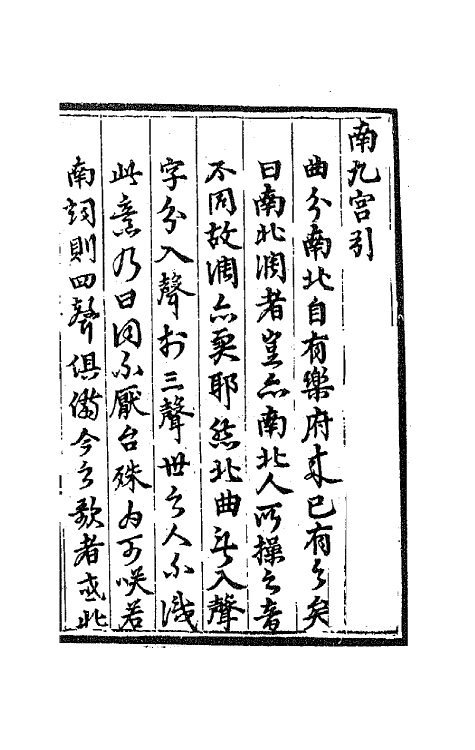 南九宫引
曲分南北自有樂府来已有之矣
曰南北調者豈亦南北人所操之音
不同故調亦異耶然北曲无入聲
字分入聲於三聲世之人不識
此意乃曰固不厭台殊为可咲若
南詞則四聲俱備今之歌者或北